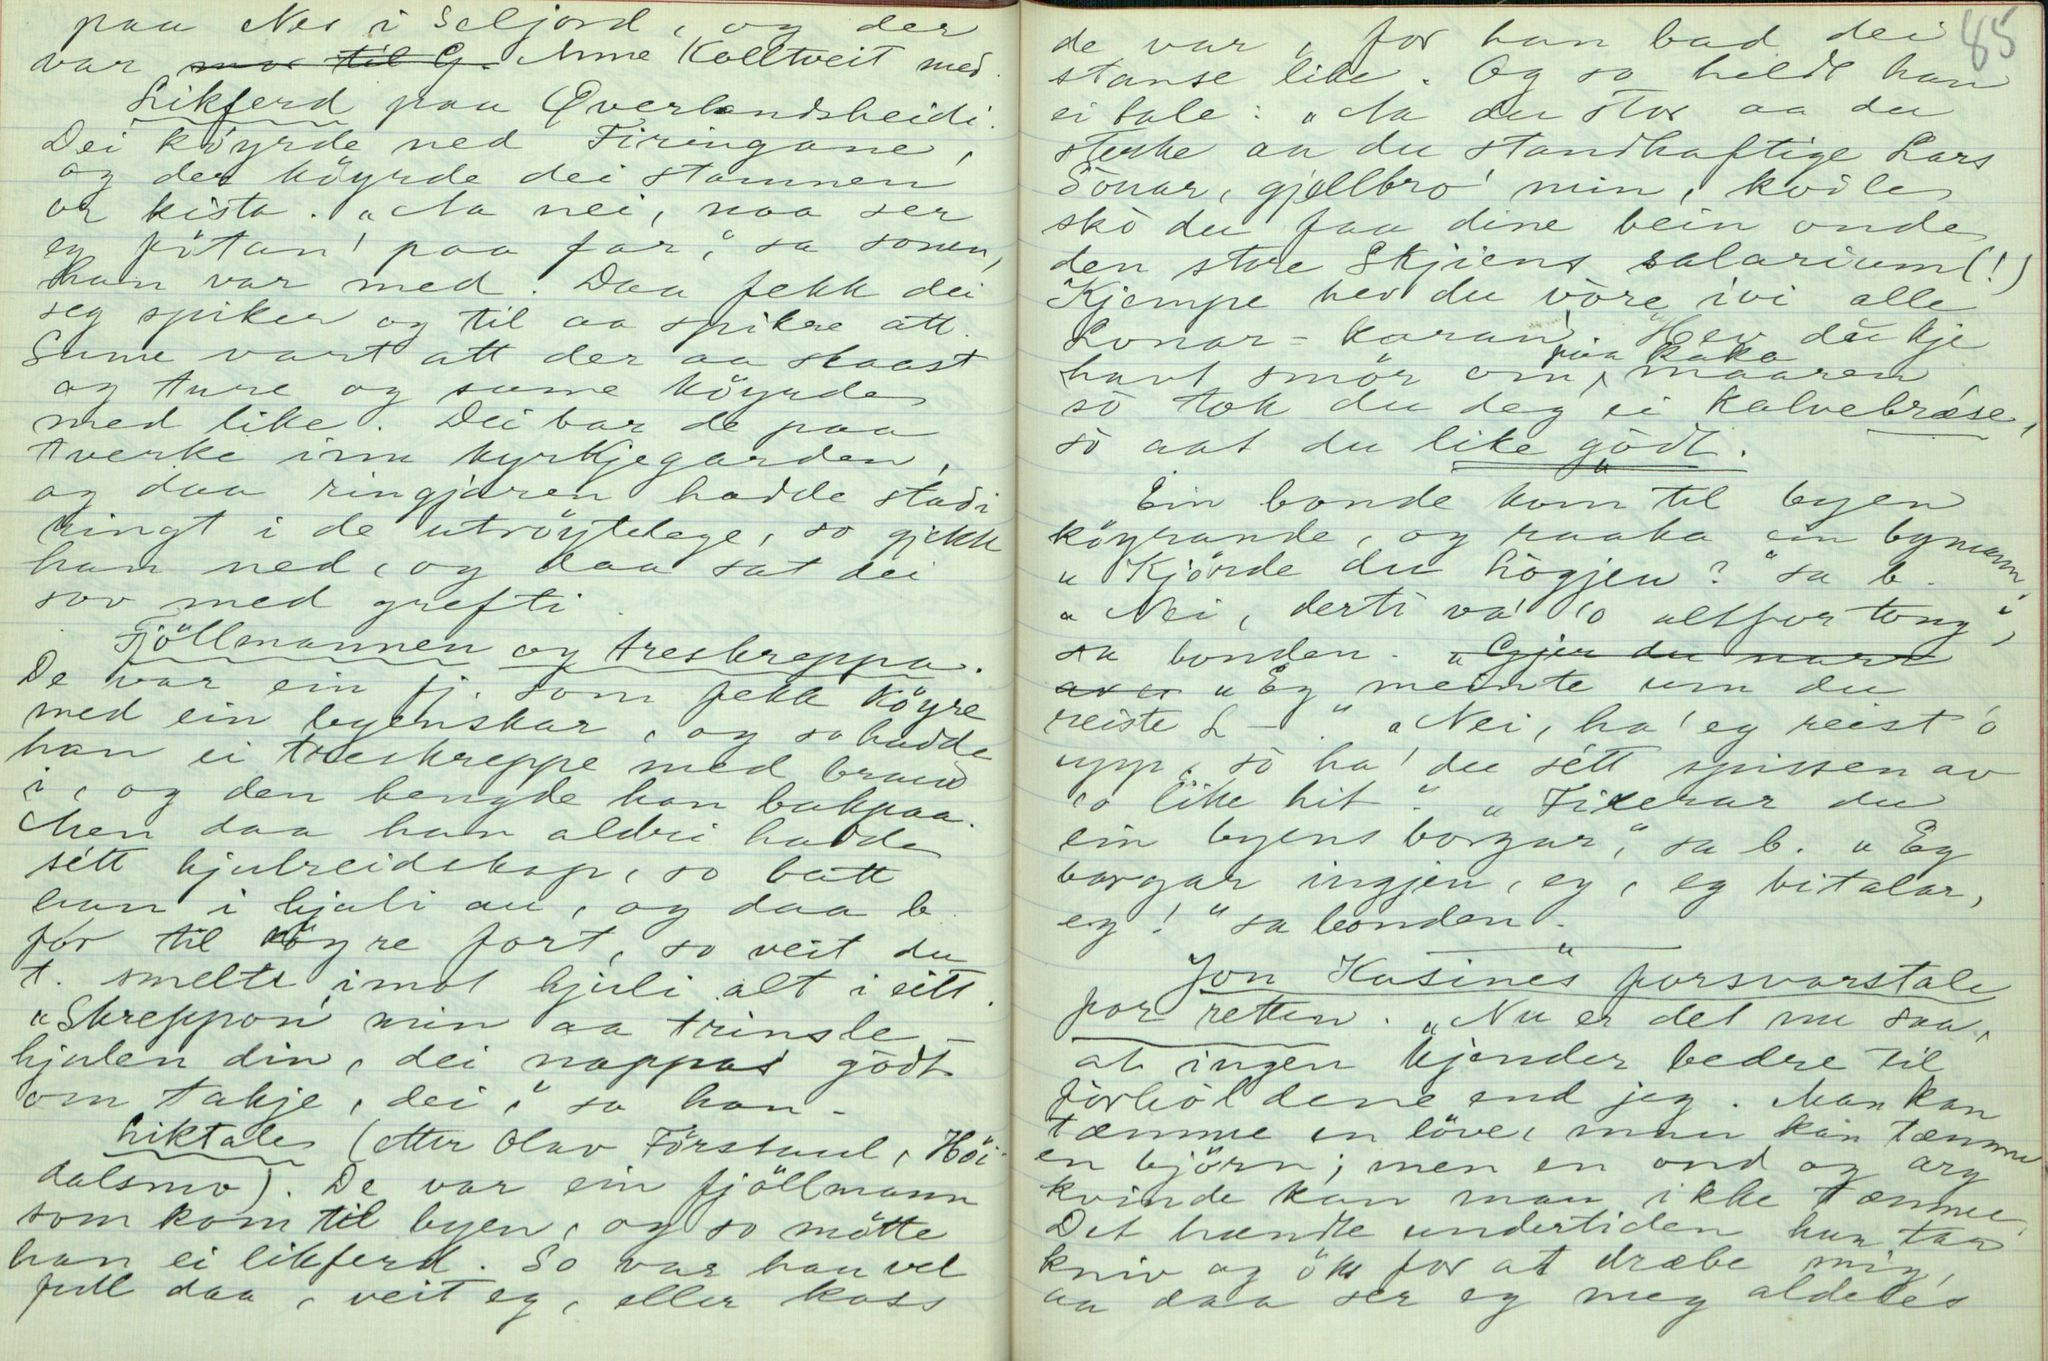 paa Nes i Seljord, og der
var mor til G. Anne Kolltveit med.
Likferd paa Øverlandsheidi.
Dei köyrde ned Firingane,
og der köyrde dei stamnen
or kista. „Aa nei, naa ser
eg fötan' paa far," sa sonen,
han var med. Daa fekk dei
seg spiker og til aa spikre att.
Sume vart att der aa slaast
og ture og sume köyrde
med like. Dei bar de paa
tverke inn kyrkjegarden,
og daa ringjaren hadde stadi
ringt i de utröytelege, so gjekk
han ned, og daa sat dei
sov med grefti.
Fjöllmannen og treskreppa.
De var ein fj. som fekk köyre
med ein byenskar, og so hadde
han ei treskreppe med braud
i, og den hengde han bakpaa.
Men daa han aldri hadde
sétt hjulreidskap, so batt
han i hjuli au, og daa b.
for til köyre fort, so veit du
t. smelte imot hjuli alt i eitt.
„Skreppon min aa trinsle-
hjulen din, dei nappas godt
om takje, dei," sa han.-
Liktale (etter Olav Förstaul, Höi-
dalsmo). De var ein fjöllmann
som kom til byen, og so mötte
han ei likferd. So var han vel
full daa, veit eg, eller koss
85
de var, for han bad dei
stanse like. Og so heldt han
ei tale: „Aa du stor aa du
sterke aa du standhaftige Lars
Sönar, gjellbro' min, kvile
skò du faa dine bein onde
den store Skjiens salarium (!)
Kjempe hev du vòre ivi alle
Lonar-karan'. Hev du kje
havt smör om paa kaka maaren,
sò tok du deg ei kalvebræse,
sò aat du like gòdt."
Ein bonde kom til byen
köyrande, og raaka ein bymann
„Kjörde du Lògjen?" sa b.
„Nei, derti va' 'o altfor tong",
sa bonden. „Gjer du narr
av ei „Eg meinte um du
reiste L-." „Nei, ha' eg reist 'o
upp, sò ha' du sétt spissen av
'o like hit." „Fixerar du
ein byens borgar," sa b. „Eg
borgar ingjen, eg, eg bitalar,
eg!" sa bonden.
Jon Kasines forsvarstale
for retten. „Nu er det nu saa,
at ingen kjender bedre til
forholdene end jeg. Man kan
tæmme en löve, man kan tæmme
en björn; men en ond og arg
kvinde kan man ikke tæmme.
Det hændte undertiden hun tar
kniv og öks for at dræbe mig,
aa daa ser eg meg aldeles